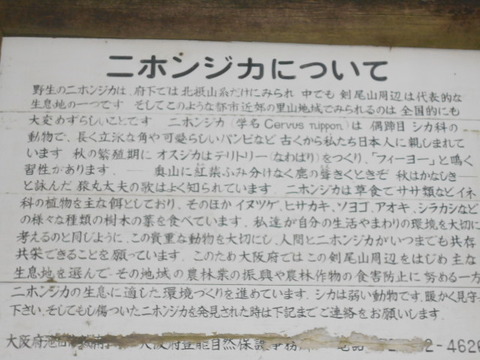 ニホンジカについて
野生のニホンジカは、府下では北摂山系だけにみられ 中でも 剣尾山周辺は代表的な
生息地の一つです そしてこのような都市近郊の里山地域でみられるのは 全国的にも
大変めずらしいことです ニホンジカ(学名 Cervus nippon)は 偶蹄目 シカ科の
動物で、長く立派な角や可愛らしいバンビなど 古くから私たち日本人に親しまれて
います 秋の繁殖期に オスジカはテリトリー(なわばり)をつくり、「フィーヨー」と鳴く
習性があります ── 奥山に紅葉ふみ分けなく鹿の聲きくときぞ 秋はかなしき──
と詠んだ 猿丸太夫の歌はよく知られています ニホンジカは草食でササ類などイネ
科の植物を主な餌としており、そのほか イヌツゲ、ヒサカキ、ソヨゴ、アオキ、シラカシなど
の様々な種類の樹木の葉を食べています 私達が自分の生活やまわりの環境を大切に
考えるのと同じように、この貴重な動物を大切にし、人間とニホンジカがいつまでも共存
共栄できることを願っています このため大阪府ではこの剣尾山周辺をはじめ主な
生息地を選んで その地域の農林業の振興や農林作物の食害防止に 努める一方
ニホンジカの生息に適した環境づくりを進めています シカは弱い動物です、暖かく見守
下さい、そしてもし傷ついたニホンジカを発見された時は下記まで ご連絡をお願いします
大阪府 大阪府豊能自然保護事務所 電話 2-4626